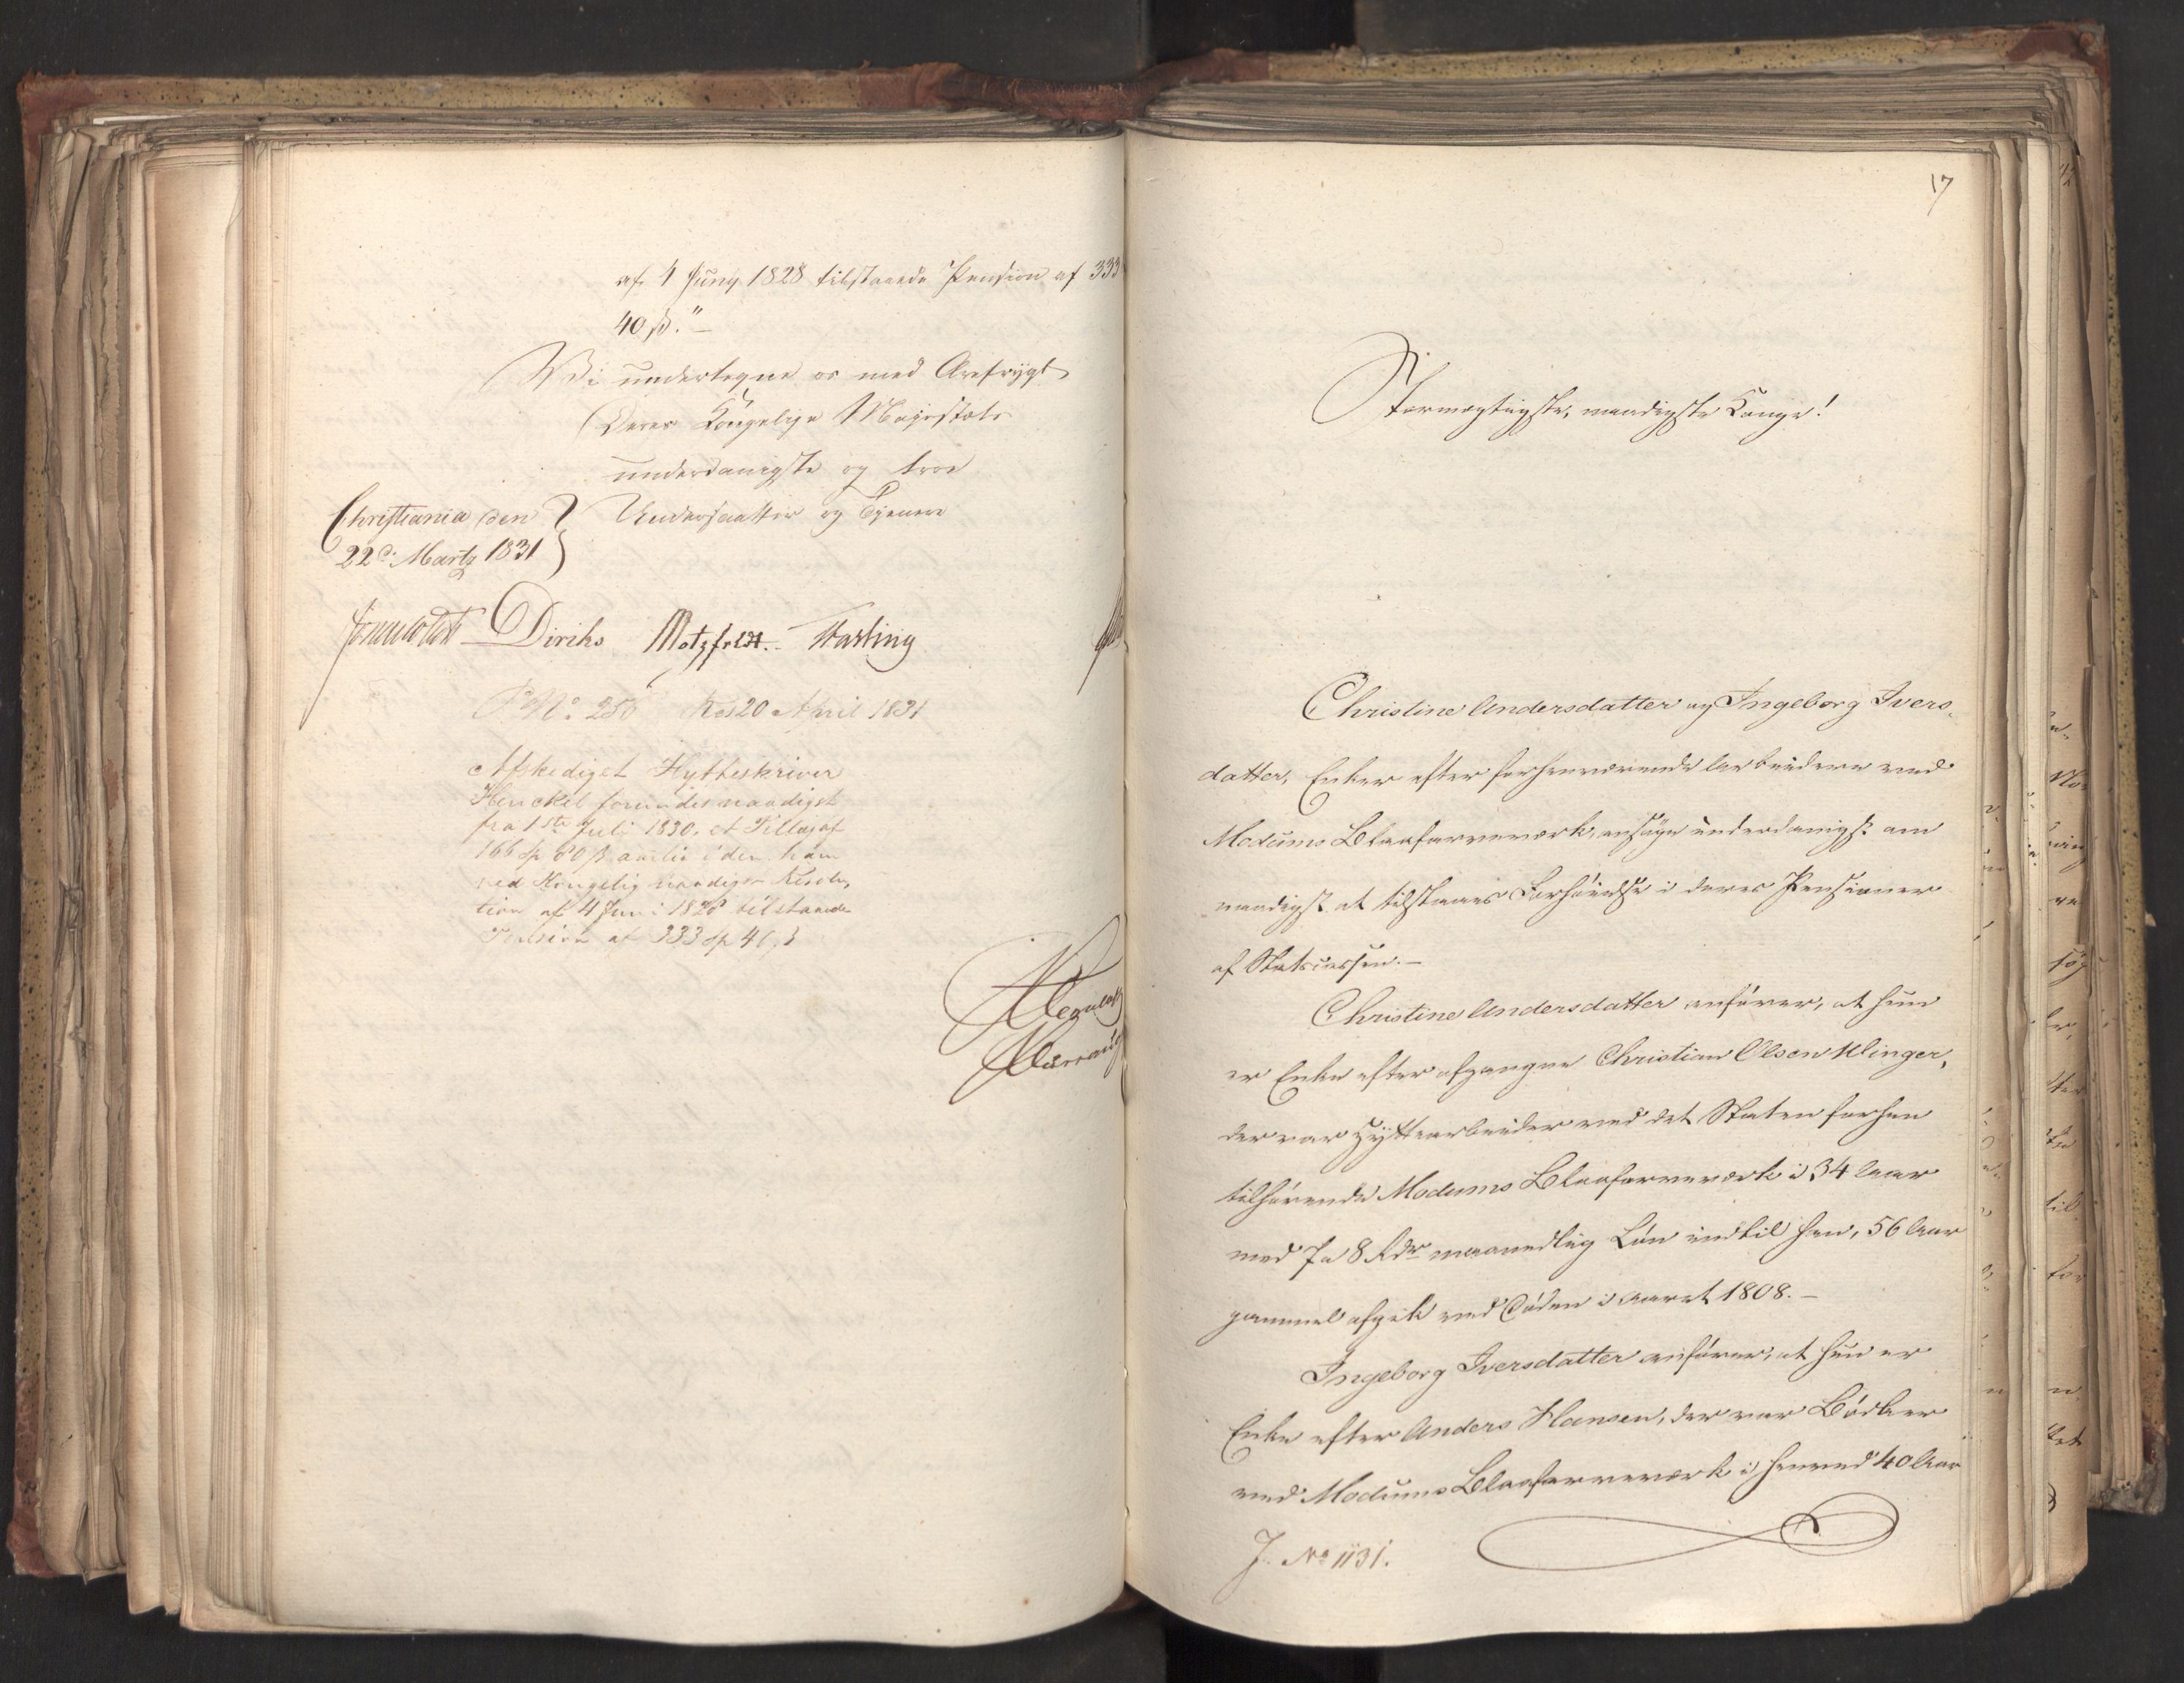 af 4 Juny 1828 tilstaaede Pension af 333
40 ß."
Vi undertegne os med Ærefrygt
Deres Kongelige Majestæts
underdanigste og troe
Christiania den
22d. Martz 1831
Undersaatter og Tjenere
Diriks Motzfeldt.
P No. 256 Res 20 April 1831
Afskediget Hytteskriver
Henckel forundes naadigst
fra 1ste Juli 1830, et Tillæg af
166 Sp 80 ß aarlig i den ham
ved Kongelig naadigst Resolu,
tion af 4 Juni 1828 tilstaaede
Pension af 333 Sp 40 ß
17
Stormægtigste, naadigste Konge!
Christine Andersdatter og Ingeborg Ivers-
datter, Enker efter forhenværende Arbeidere ved
Modums Blaafarveværk, ansøge underdanigst om
naadigst at tilstaaes Forhøielse i deres Pensioner
af Statscassen.-
Christine Andersdatter anfører, at hun
er Enke efter afgangne Christian Olsen Klinger,
der var Hyttearbeider ved det Staten forhen
tilhørende Modums Blaafarveværk i 34 Aar
med 7 a 8 Rdr maanedlig Løn indtil han, 56 Aar
gammel afgik ved Døden i Aaret 1808.-
Ingeborg Iversdatter anfører, at hun er
Enke efter Anders Hansen, der var Bødker
ved Modums Blaafarveværk i henved 40 Aar
J. No 1131.